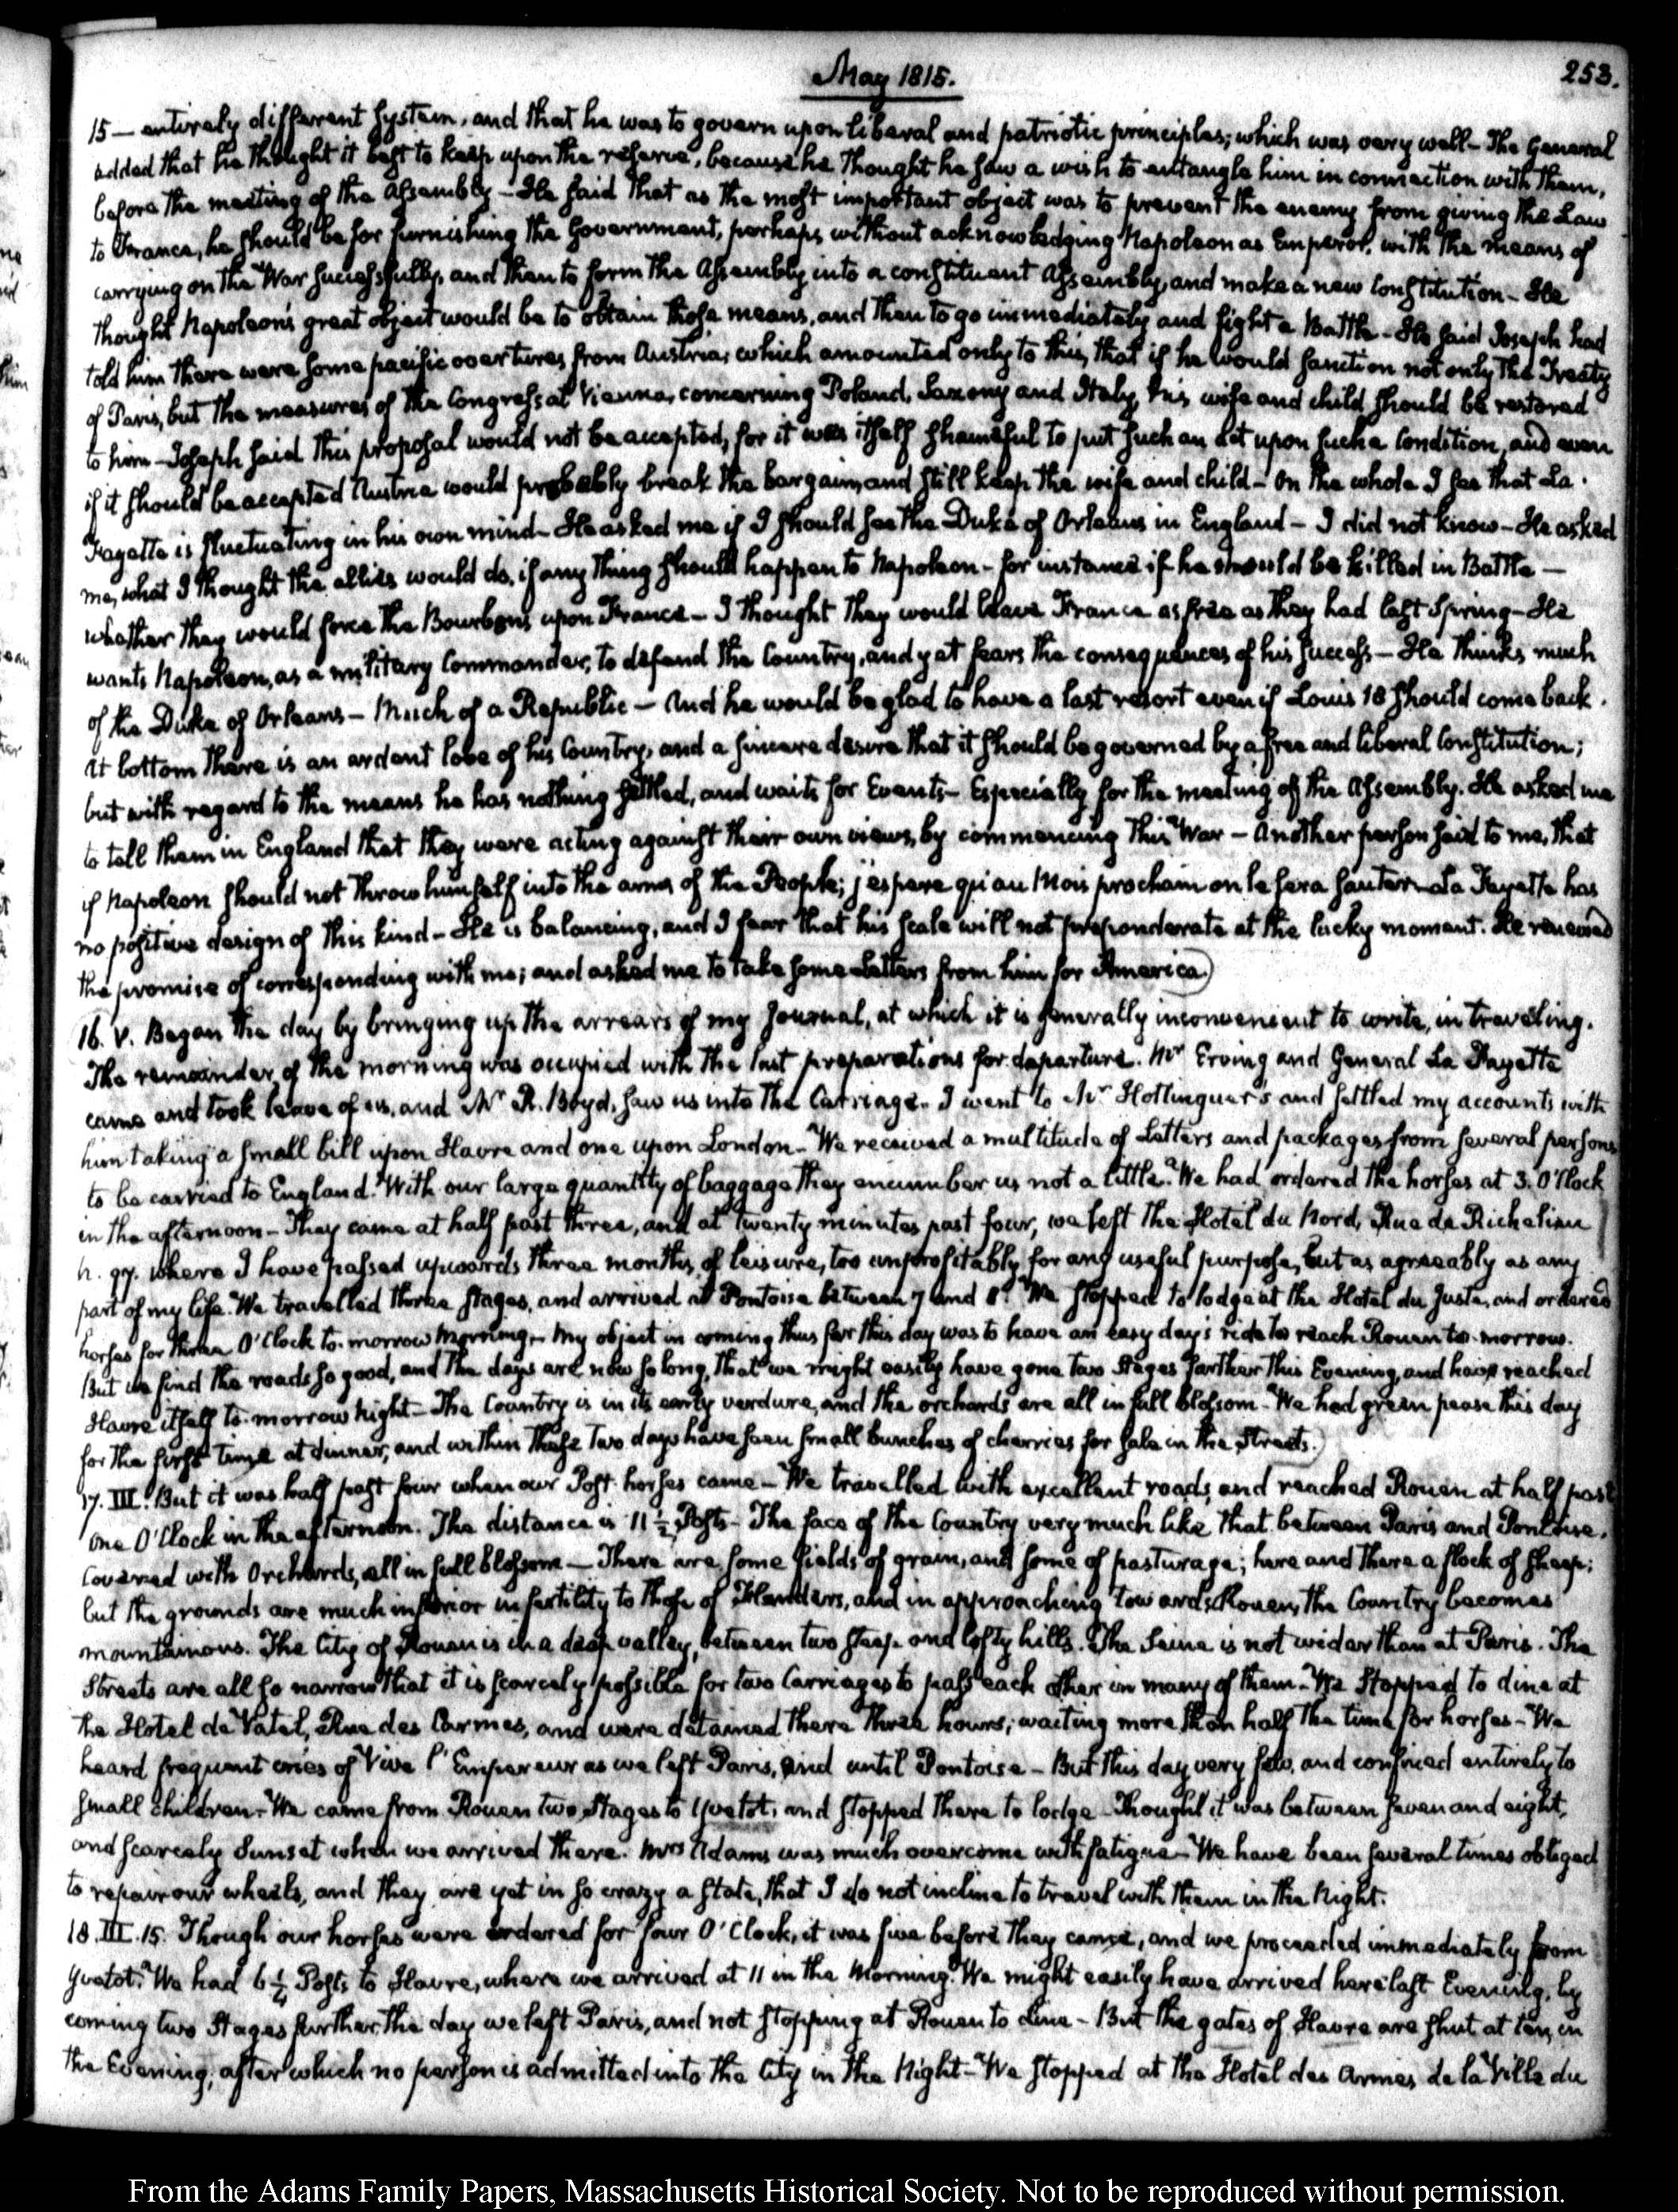 May 1815.
253.
15 — entirely different System, and that he was to govern upon liberal and patriotic principles; which was very well — The General
added that he thought it best to keep upon the reserve, because he thought he saw a wish to entangle him in connection with them,
before the meeting of the Assembly — He said that as the most important object was to prevent the enemy from giving the Law
to France, he should be for furnishing the Government, perhaps without acknowledging Napoleon as Emperor, with the means of
carrying on the War successfully, and then to form the Assembly into a constituent Assembly, and make a new Constitution — He
thought Napoleon's great object would be to obtain those means, and then to go immediately and fight a Battle — He said Joseph had
told him there were some pacific overtures from Austria, which amounted only to this, that if he would sanction not only the Treaty
of Paris, but the measures of the Congress at Vienna, concerning Poland, Saxony and Italy, his wife and child should be restored
to him — Joseph said this proposal would not be accepted, for it was itself shameful to put such an Act upon such a Condition, and even
if it should be accepted Austria would probably break the bargain, and still keep the wife and child — On the whole I see that La
Fayette is fluctuating in his own mind — He asked me if I should see the Duke of Orleans in England — I did not know — He asked
me, what I thought the allies would do, if any thing should happen to Napoleon — for instance if he should be killed in Battle —
whether they would force the Bourbons upon France — I thought they would leave France as free as they had last Spring — He
wants Napoleon, as a military Commander, to defend the Country, and yet fears the consequences of his success — He thinks much
of the Duke of Orleans — Much of a Republic — And he would be glad to have a last resort even if Louis 18 should come back.
At bottom there is an ardent love of his Country, and a sincere desire that it should be governed by a free and liberal Constitution;
but with regard to the means he has nothing settled, and waits for Events — Especially for the meeting of the Assembly. He asked me
to tell them in England that they were acting against their own views, by commencing this War — Another person said to me, that
if Napoleon should not throw himself into the arms of the People; j'espere qu'au Mois prochain on le fera sauter — La Fayette has
no positive design of this kind — He is balancing, and I fear that his scale will not preponderate at the lucky moment. He renewed
the promise of corresponding with me; and asked me to take some Letters from him for America.)
16. V. Began the day by bringing up the arrears of my Journal, at which it is generally inconvenient to write, in traveling.
The remainder of the morning was occupied with the last preparations for departure. Mr Erving and General La Fayette
came and took leave of us, and Mr R. Boyd, saw us into the Carriage. I went to Mr Hottinguer's and settled my accounts with
him taking a small bill upon Havre and one upon London — We received a multitude of Letters and packages from several persons,
to be carried to England. With our large quantity of baggage they encumber us not a little. We had ordered the horses at 3. O'Clock
in the afternoon — They came at half past three, and at twenty minutes past four, we left the Hotel du Nord, Rue de Richelieu
n. 97. where I have passed upwards three months, of leisure, too unprofitably for any useful purpose, but as agreeably as any
part of my life. We travelled three stages, and arrived at Pontoise between 7 and 8. We stopped to lodge at the Hotel du Juste, and ordered
horses for three O'Clock to-morrow Morning — My object in coming thus far this day was to have an easy day's ride to reach Rouen to-morrow.
But we find the roads so good, and the days are now so long, that we might easily have gone two Stages farther this Evening, and have reached
Havre itself to-morrow Night — The Country is in its early verdure, and the orchards are all in full blossom — We had green pease this day
for the first time at dinner, and within these two days have seen small bunches of cherries for sale in the Streets.)
17. III. But it was half past four when our Post-horses came — We travelled with excellent roads, and reached Rouen at half past
one O'Clock in the afternoon. The distance is 11½ Posts — The face of the Country very much like that between Paris and Pontoise.
Covered with Orchards, all in full blossom — There are some fields of grain, and some of pasturage; here and there a flock of sheep;
but the grounds are much inferior in fertility to those of Flanders, and in approaching towards Rouen, the Country becomes
mountainous. The City of Rouen is in a deep valley, between two steep and lofty hills. The Seine is not wider than at Paris. The
Streets are all so narrow that it is scarcely possible for two Carriages to pass each other in many of them — We Stopped to dine at
the Hotel de Vatel, Rue des Carmes, and were detained there three hours; waiting more than half the time for horses — We
heard frequent cries of Vive l'Empereur as we left Paris, and until Pontoise — But this day very few, and confined entirely to
small children — We came from Rouen two Stages to Yvetot, and stopped there to lodge — Though it was between seven and eight,
and scarcely Sunset when we arrived there. Mrs Adams was much overcome with fatigue — We have been several times obliged
to repair our wheels, and they are yet in so crazy a state, that I do not incline to travel with them in the Night.
18. III. 15. Though our horses were ordered for four O'Clock, it was five before they came, and we proceeded immediately from
Yvetot. We had 6¼ Posts to Havre, where we arrived at 11 in the Morning. We might easily have arrived here last Evening, by
coming two Stages further the day we left Paris, and not stopping at Rouen to dine — But the gates of Havre are shut at ten, in
the Evening, after which no person is admitted into the City in the Night — We stopped at the Hotel des Armes de la Ville du
From the Adams Family Papers, Massachusetts Historical Society. Not to be reproduced without permission.